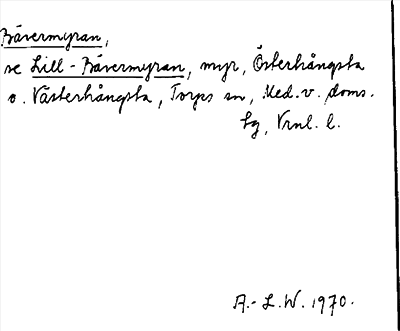 Bävermyran,
se Lill-Bävermyran, myr, Österhångsta
o. Västerhångsta, Torps sn, Med. v. doms.
tg, Vrnl. l.
A.-L.W. 1970.